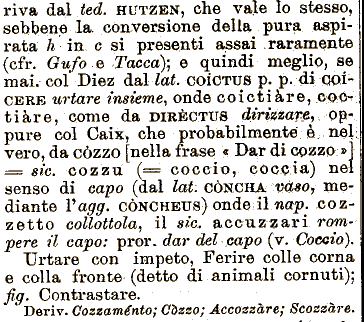 riva dal ted. HUTZEN, che vale lo stesso,
sebbene la conversione della pura aspi-
rata h in c si presenti assai raramente
(cfr. Gufo e Tacca); e quindi meglio, se
mai. col Diez dal lat. COICTUS p. p. di COÍ-
CERE urtare insieme, onde coictiàre, coc-
tiàre, come da DIRÈCTUS dirizzare, op-
pure col Caix, che probabilmente è nel
vero, da còzzo [nella frase « Dar di cozzo »]
= sic. cozzu (= coccio, coccia) nel
senso di capo (dal lat. CÒNCHA vaso, me-
diante l'agg. CÒNCHEUS) onde il nap. coz-
zetto collottola, il sic. accuzzari rom-
pere il capo: pror. dar del capo (v. Coccio).
Urtare con impeto, Ferire colle corna
e colla fronte (detto di animali cornuti);
fig. Contrastare.
Deriv. Cozzaménto; Còzzo; Accozzàre; Scozzàre.